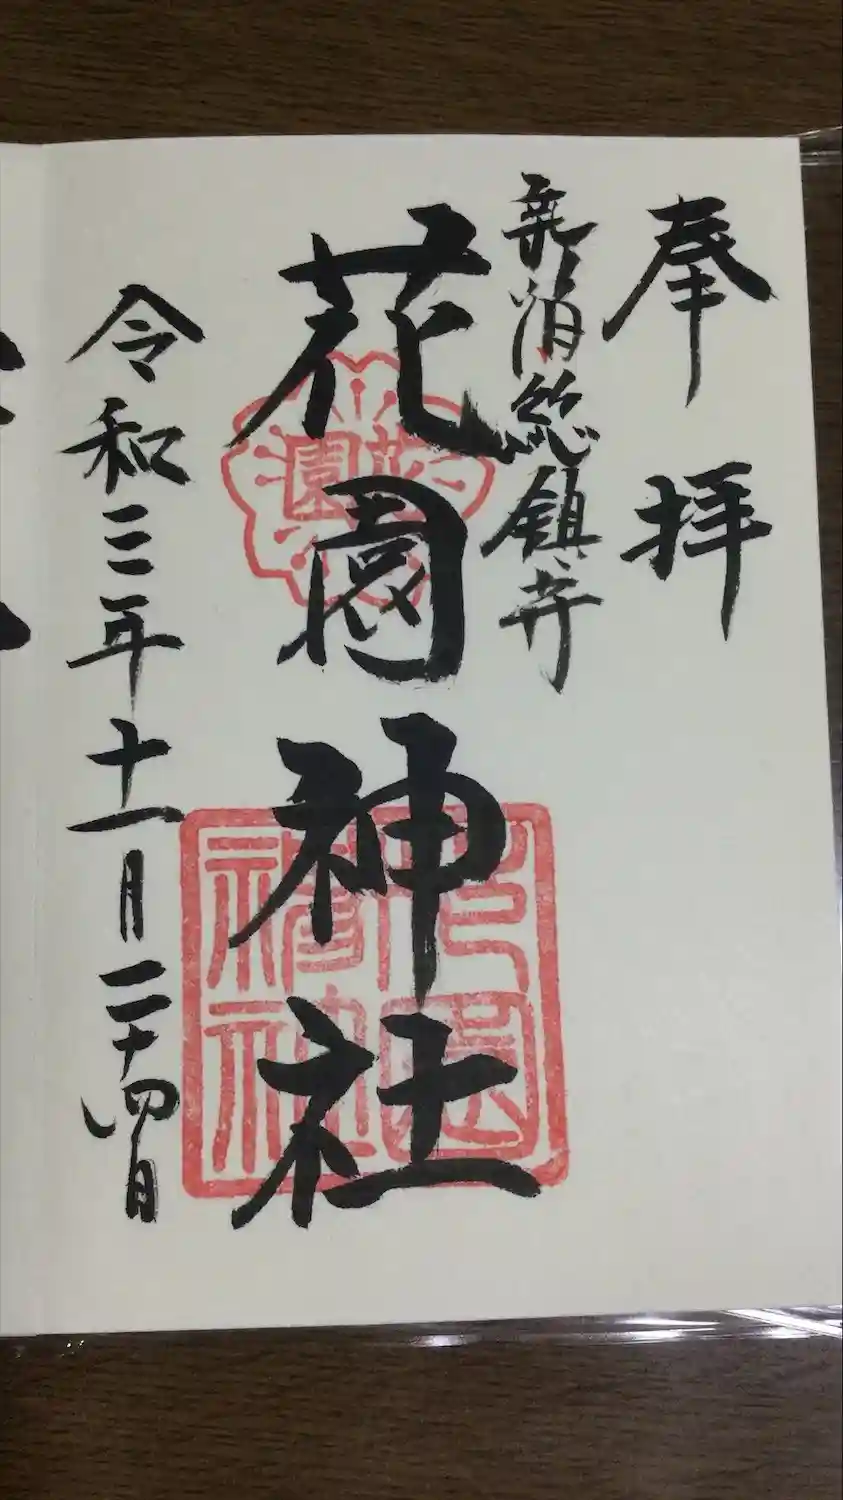 奉拝
新宿総鎮守
花園神社
花園
花園神社
令和三年十一月二十四日